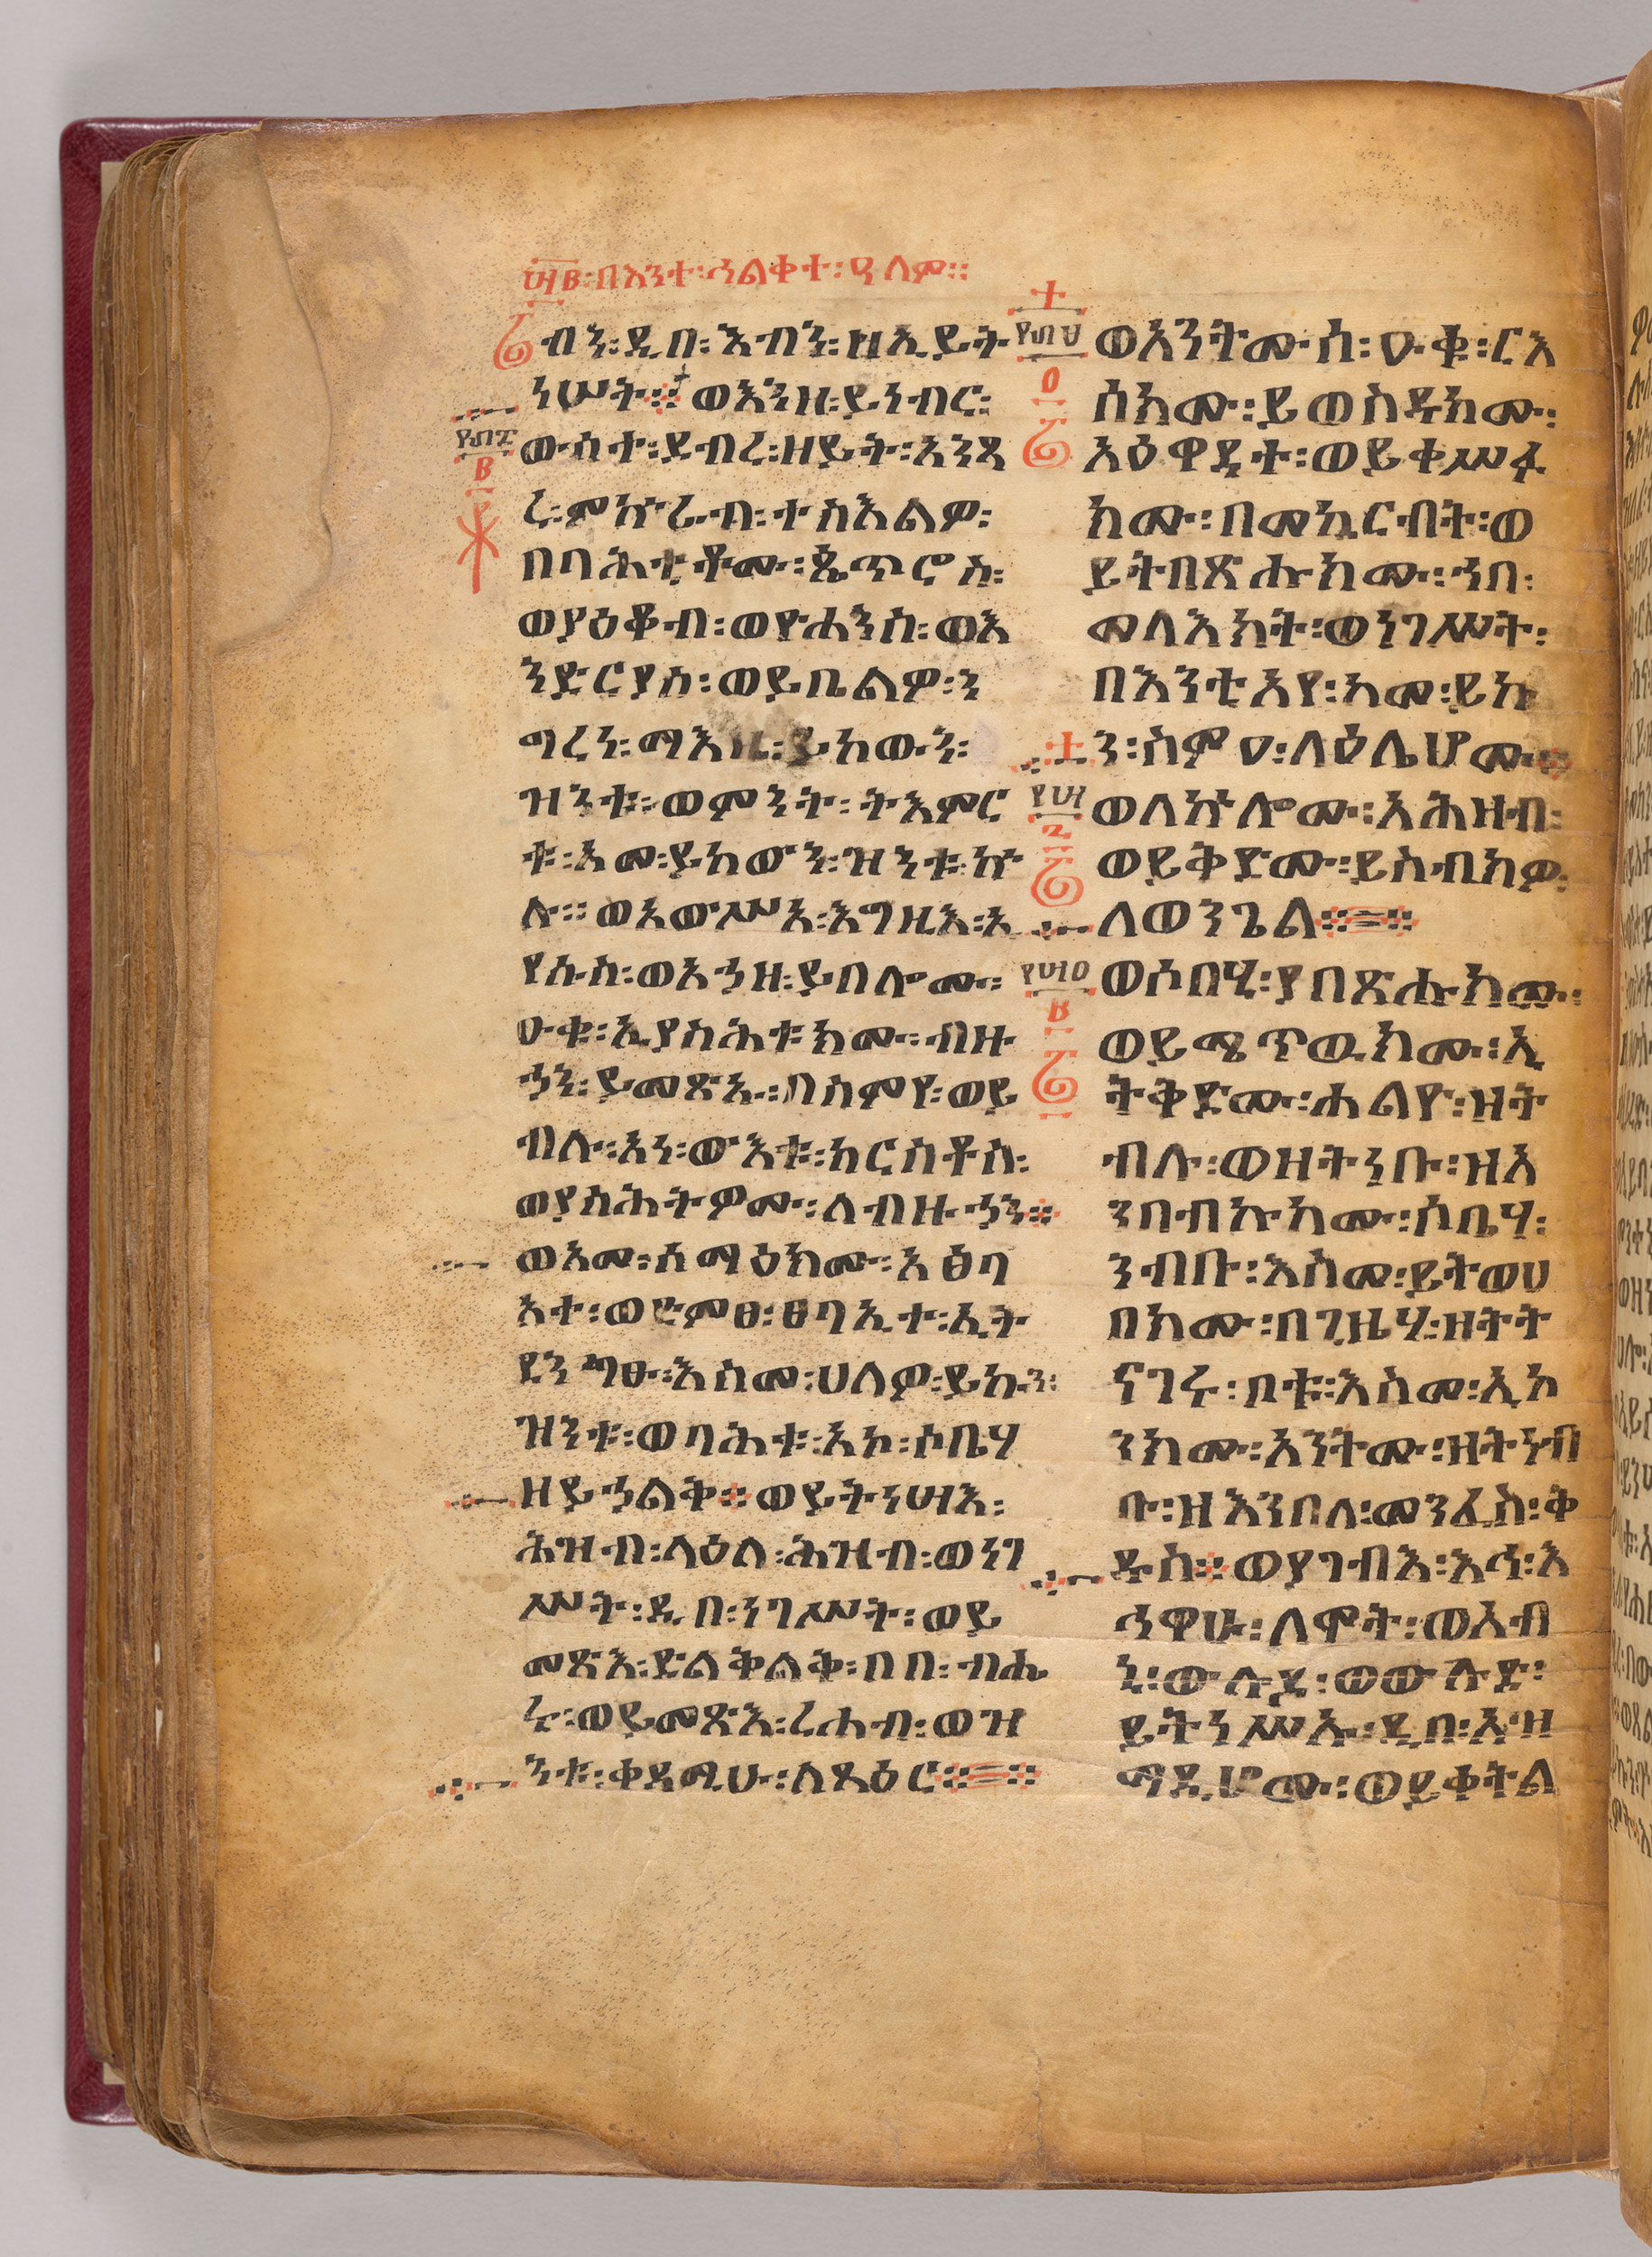 በእንተ፡ኅልቀተ፡ዓለም።
ብን፡ዲበ፡እብን፡ዘኢይት
ነሠት፨ወእንዘ፡ይነብር፡
ውስተ፡ደብረ፡ዘይት፡አንጻ
ረ፡ምኵራብ፡ተስእልዎ፡
በባሕቲቶሙ፡ጴጥሮስ፡
ወያዕቆብ፡ወዮሐንስ፡ወእ
ንድርያስ፡ወይቤልዎ፡ን
ግረነ፡ማእዜ፡ይከውን፡
ዝንቱ፡ወምንት፡ትእምር
ቱ፡አመ፡ይከውን፡ዝንቱ፡ኵ
ሉ።ወአውሥአ፡እግዚእ፡ኢ
የሱስ፡ወአኀዘ፡ይበሎሙ፡
ዑቁ፡ኢያስሕቱክሙ፡ብዙ
ኃን፡ይመጽኡ፡በስምየ፡ወይ
ብሉ፡አነ፡ውእቱ፡ክርስቶስ፡
ወያስሕትዎሙ፡ለብዙኃን፨
ወአመ፡ሰማዕክሙ፡አፅባ
አተ፡ወድምፀ፡ፀባኢተ፡ኢት
ደንግፁ፡እስመ፡ሀለዎ፡ይኩን፡
ዝንቱ፡ወባሕቱ፡አኮ፡ሶቤሃ
ዘይኀልቅ፨ወይትነሣእ፡
ሕዝብ፡ላዕለ፡ሕዝብ፡ወነገ
ሥት፡ዲበ፡ነገሥት፡ወይ
መጽእ፡ድልቅልቅ፡በበ፡ብሔ
ሩ፡ወይመጽእ፡ረሐብ፡ወዝ
ንቱ፡ቀዳሚሁ፡ለጻዕር፨
ወአንትሙሰ፡ዑቁ፡ርእ
ሰክሙ፡ይወስዱክሙ፡
አዕዋደተ፡ወይቀሥፉ
ክሙ፡በመኳርብት፡ወ
ይትበጽሑክሙ፡ኀበ፡
መላእክት፡ወነገሥት፡
በእንቲአየ፡ከመ፡ይኩ
ን፡ስምዐ፡ላዕሌሆሙ፨
ወለኵሎሙ፡አሕዛብ፡
ወይቅድሙ፡ይስብክዎ፡
ለወንጌል፨
ወሶበሂ፡ያበጽሑክሙ፡
ወይሜጥዉክሙ፡ኢ
ትቅድሙ፡ሐልዮ፡ዘት
ብሉ፡ወዘትነቡ፡ዘእ
ንበብኩክሙ፡ሶቤሃ፡
ንብቡ፡እስመ፡ይትወሀ
በክሙ፡በጊዜሃ፡ዘትት
ናገሩ፡ቦቱ፡እስመ፡ኢኮ
ንክሙ፡አንትሙ፡ዘትነብ
ቡ፡ዘእንበለ፡መንፈስ፡ቅ
ዱስ፨ወያገብእ፡እኅ፡እ
ኅዋሁ፡ለሞት፡ወአብ
ኒ፡ውሉደ፡ወውሉድ፡
ይትነሥኡ፡ዲበ፡አዝ
ማዲሆሙ፡ወይቀትል